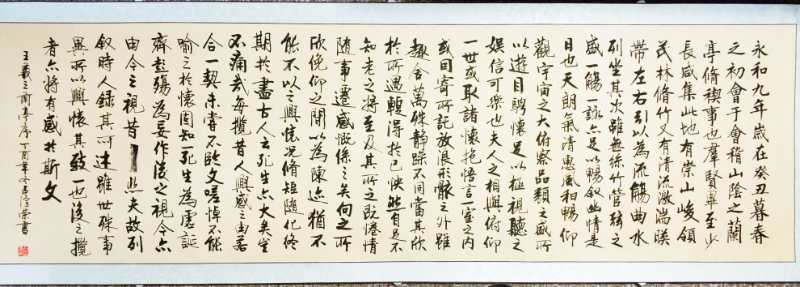 永和九年歲在癸丑暮春
之初會于會稽山陰之蘭
亭脩稧事也群賢畢至少
長咸集此地有崇山峻領
茂林脩竹又有清流激湍暎
帶左右引以為流觴曲水
列坐其次雖無絲竹管弦之
盛一觴一詠亦足以暢叙幽情是
日也天朗氣清惠風和暢仰
觀宇宙之大俯察品類之盛所
以遊目騁懷足以極視聽之
娛信可樂也夫人之相與俯仰
一世或取諸懷抱悟言一室之內
或因寄所託放浪形骸之外雖
趣舍萬殊靜躁不同當其欣
於所遇輙得於己快然自足不
知老之將至及其所之既惓情
隨事遷感慨係之矣向之所
欣俛仰之間以為陳迹猶不
能不以之興懷況脩短隨化終
期於盡古人云死生亦大矣豈
不痛哉每攬昔人興感之由若
合一契未嘗不臨文嗟悼不能
喻之於懷固知一死生為虛誕
齊彭殤為妄作後之視今亦
由今之視昔悲夫故列
叙時人錄其所述雖世殊事
異所以興懷其致一也後之攬
者亦將有感於斯文
王羲之蘭亭序 丁亥年 書